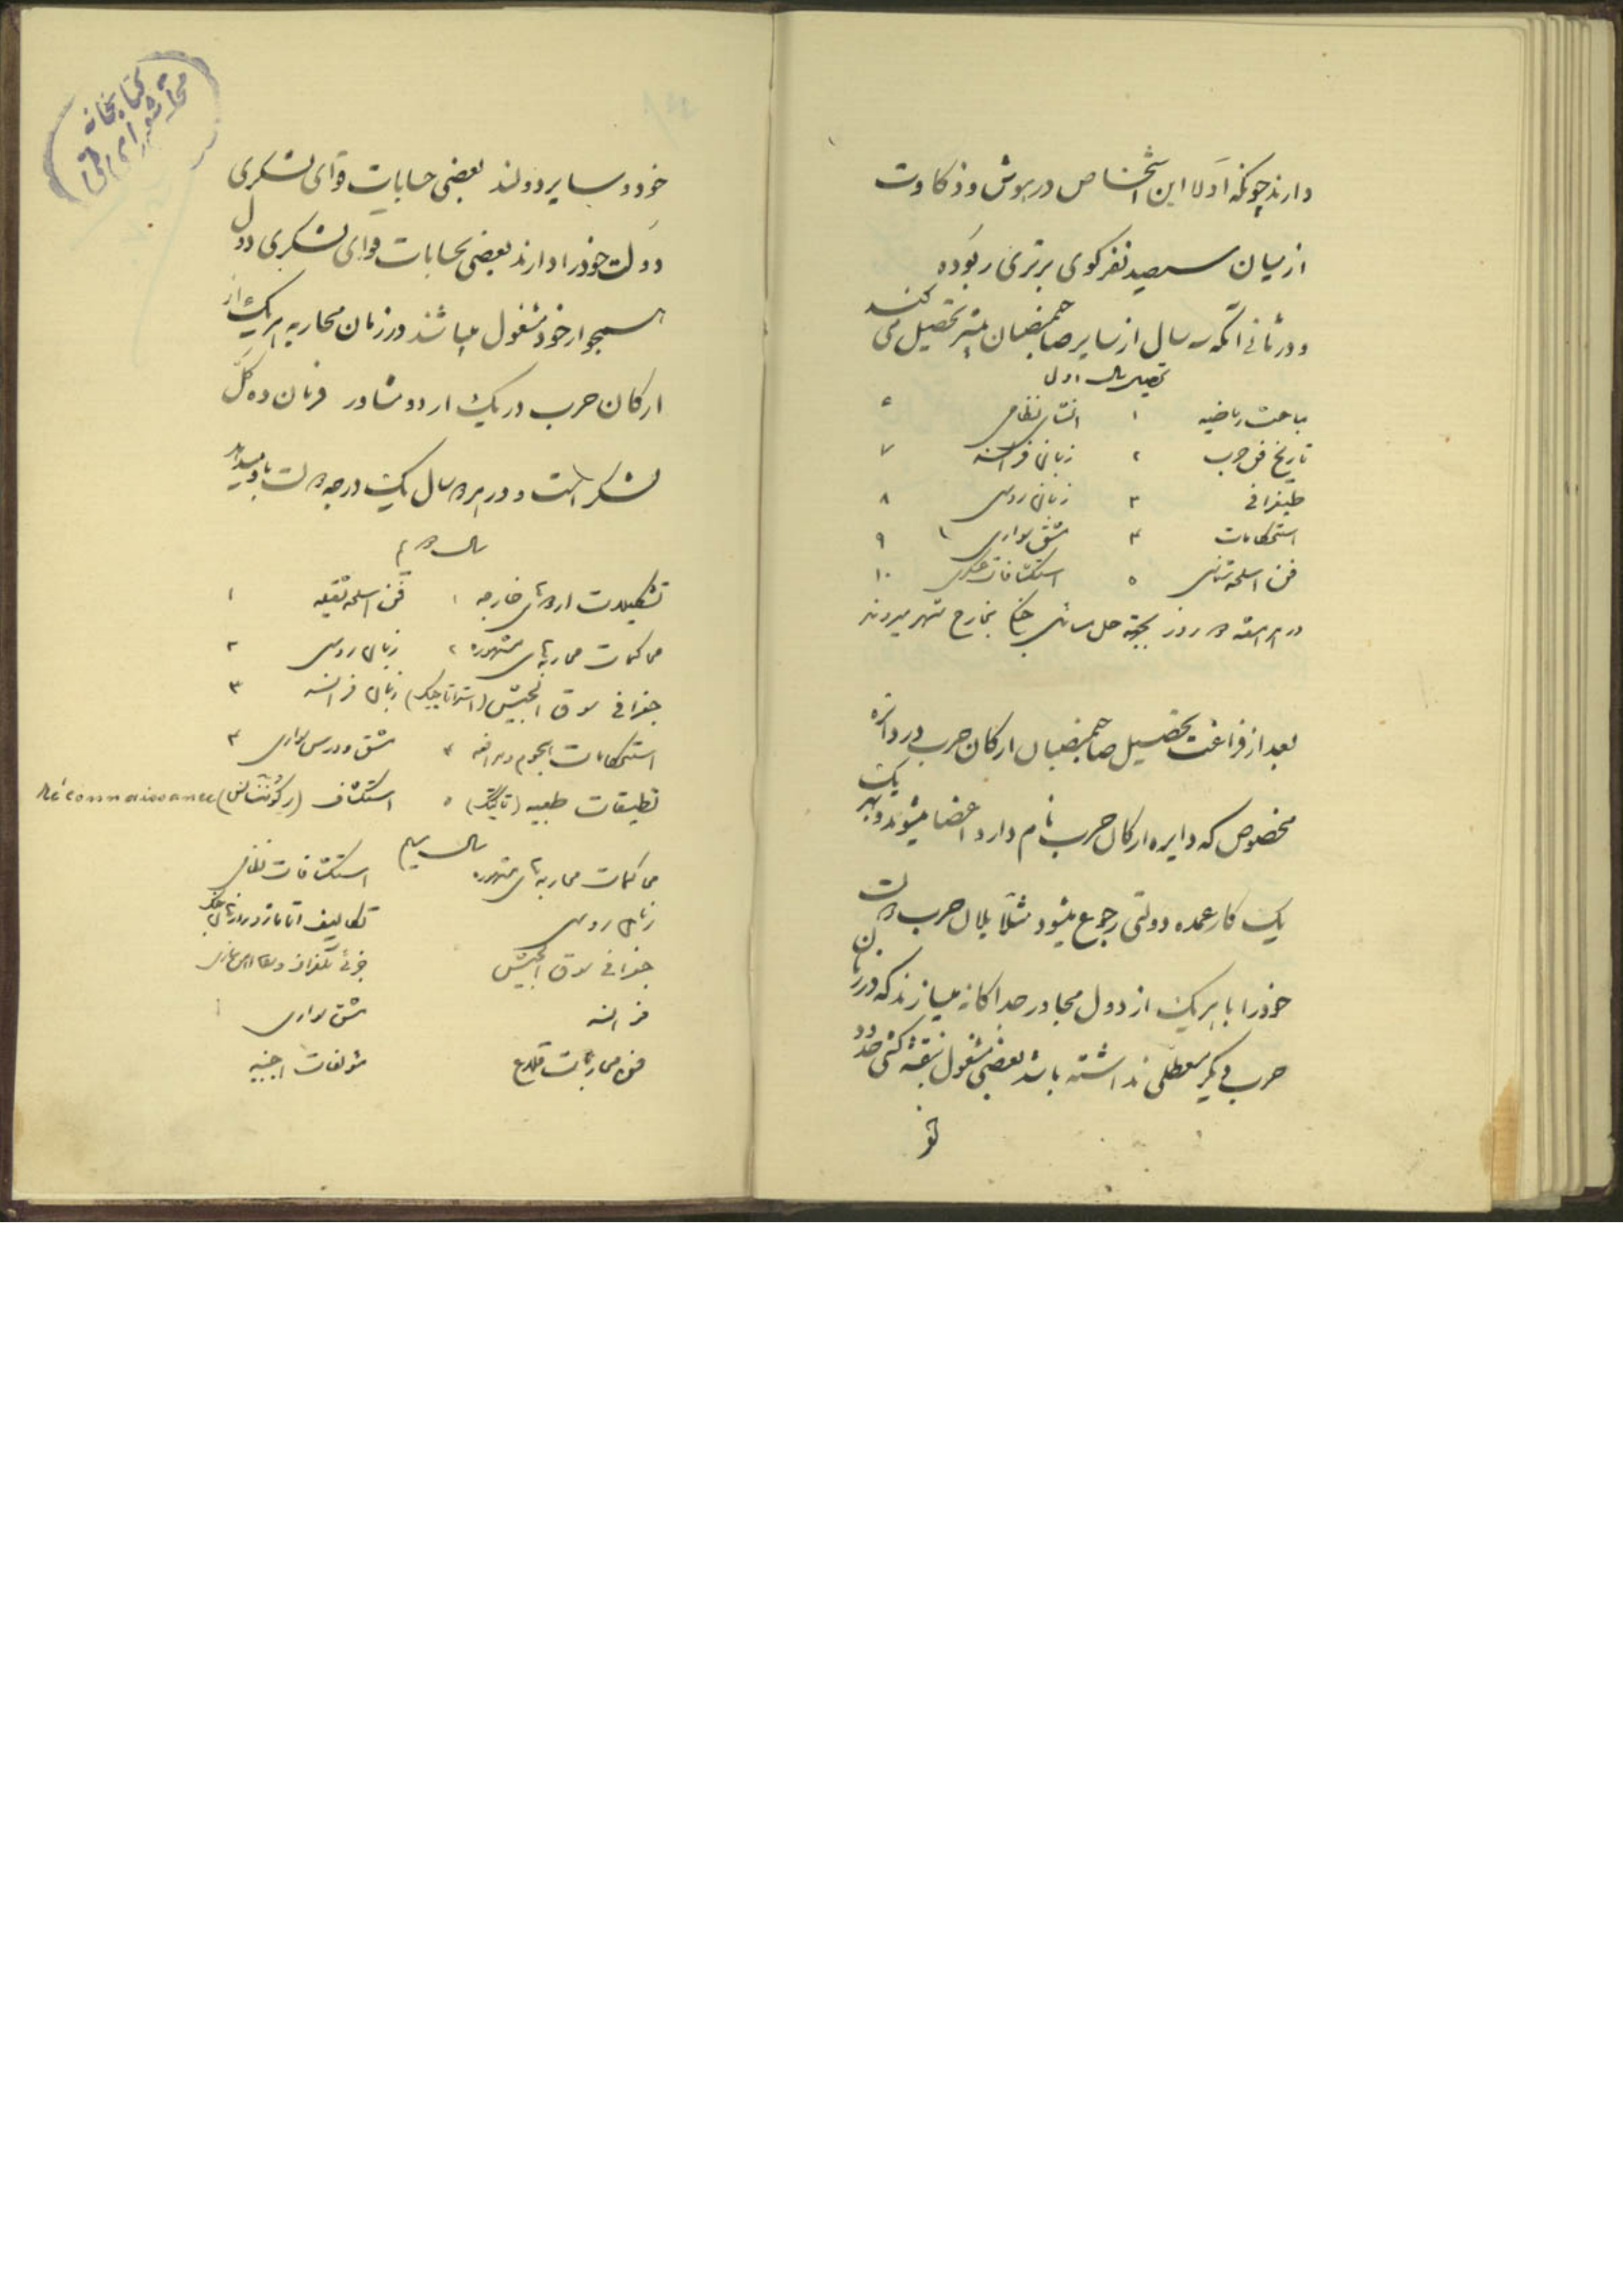 دارند چونکه اولا این اشخاص در هوش و ذکاوت
از میان سیصد نفر کوی برتری ربوده
و در ثانی آنکه سه سال از سایر صاحبمنصبان بیشتر تحصیل می کنند
تحصیل سال اول
مباحث ریاضیه ۱ انشای نظامی ۶
تاریخ فن حرب ۲ زبان فرانسه ۷
طپغرافی ۳ زبان روسی ۸
استحکامات ۴ مشق سواری ۹
فن اسلحه شناسی ۵ استکشافات عسکری ۱۰
در هر هفته دو روز بجهة حل مسائل جنگ بخارج شهر میروند
بعد از فراغت تحصیل صاحبمنصبان ارکان حرب در دائره
مخصوص که دایره ارکان حرب نام دارد اعضا میشوند و بهر یک
یک کار عمده دولتی رجوع میشود مثلا پلان حرب دولت
خود را با هر یک از دول مجاور جداکانه میسازند که در زمان
حرب دیگر معطلی نداشته باشد بعضی مشغول نقشه کشی حدود
خود و سایر دولند بعضی حسابات قوای لشکری
دولت خود را دارند بعضی بحسابات قوای لشکری دول
همجوار خود مشغول میباشند در زمان محاربه هر یک از
ارکان حرب در یک اردو مشاور فرمان ده کل
لشکر است و در هر دو سال یک درجه دولت باو میدهد
سال دویم
تشکیلات اردوهای خارجه ۱ فن اسلحه ثقیله ۱
محاکمات محاربه‌های مشهوره ۲ زبان روسی ۲
جغرافی سوق الجیش (استراتاجیک) زبان فرانسه ۳
استحکامات هجوم و مدافعه ۴ مشق و درس سواری ۴
تطبیقات طعبیه (تاکتیک) ۵ استکشاف (رکونتسانس) Réconnaissance
سال سیم
محاکمات محاربه‌های مشهوره استکشافات نظامی
زبان روسی تکالیف
جغرافی سوق الجیش
فرانسه مشق سواری
فن محاربات قلاع مؤلفات اجنبیه
کتابخانه
مجلس شورای ملی